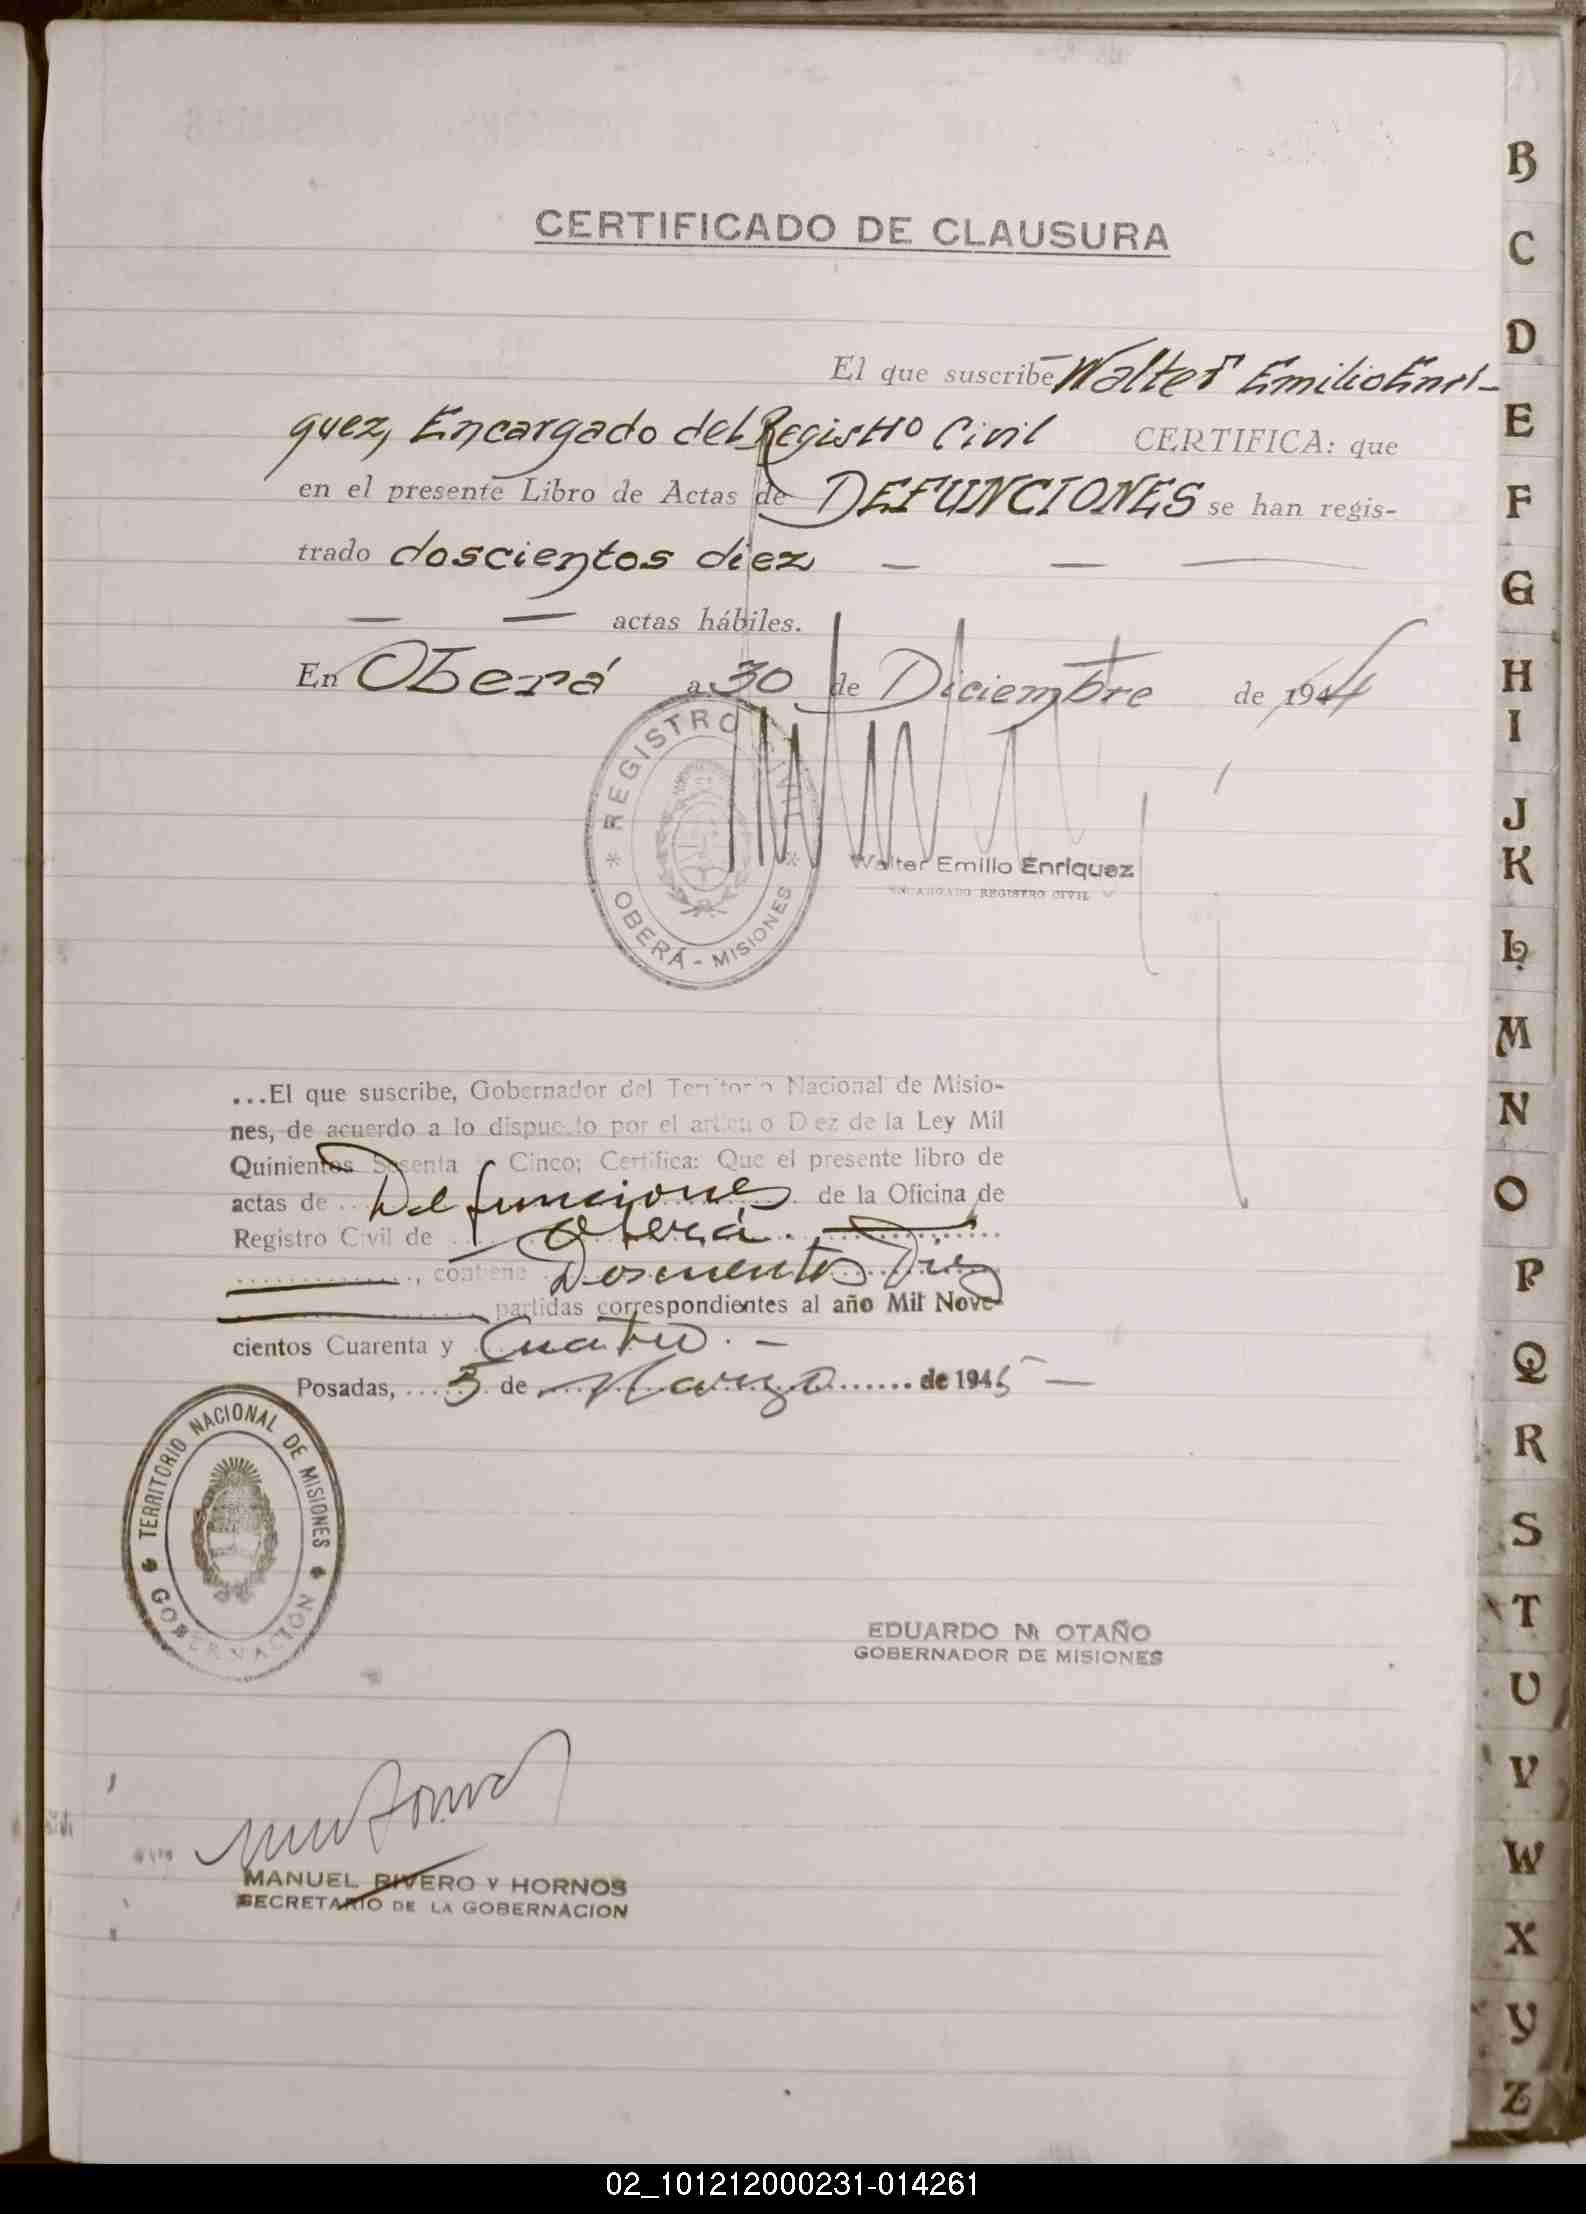 CERTIFICADO DE CLAUSURA
El que suscribe Walter Emilio Enri-
quez, Encargado del Registro Civil CERTIFICA: que
en el presente Libro de Actas de DEFUNCIONES se han regis-
trado doscientos diez — — —
— — actas hábiles.
En Oberá a 30 de Diciembre de 1944
REGISTRO CIVIL
* OBERÁ - MISIONES *
Walter Emilio Enriquez
ENCARGADO REGISTRO CIVIL
...El que suscribe, Gobernador del Territorio Nacional de Misio-
nes, de acuerdo a lo dispuesto por el articulo Diez de la Ley Mil
Quinientos Sesenta y Cinco; Certifica: Que el presente libro de
actas de Defunciones de la Oficina de
Registro Civil de Oberá.
, contiene Doscientos Diez
partidas correspondientes al año Mil Nove-
cientos Cuarenta y Cuatro.-
Posadas, 5 de Marzo de 1945 —
TERRITORIO NACIONAL DE MISIONES
GOBERNACIÓN
EDUARDO M. OTAÑO
GOBERNADOR DE MISIONES
MANUEL RIVERO Y HORNOS
SECRETARIO DE LA GOBERNACION
B
C
D
E
F
G
H
I
J
K
L
M
N
O
P
Q
R
S
T
U
V
W
X
Y
Z
02_101212000231-014261